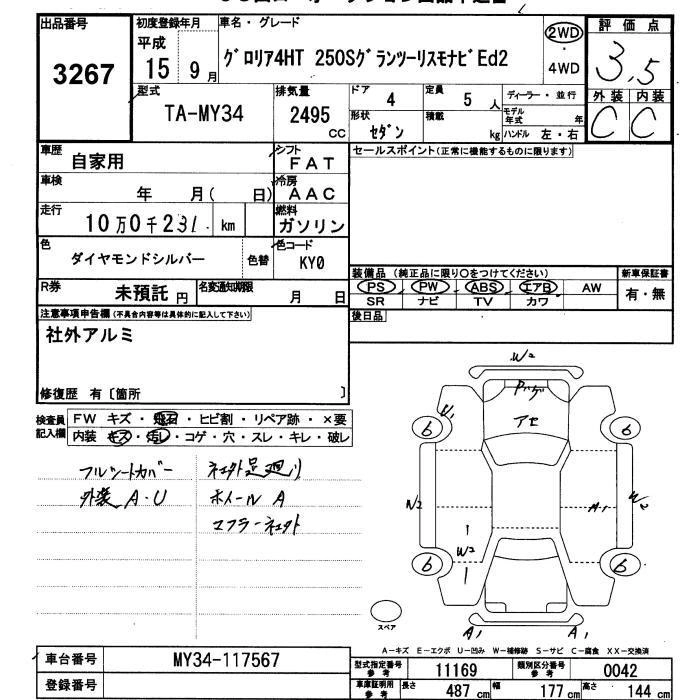 出品番号 初度登録年月 車名・グレード 評価点
3267 平成 15 9月 グロリア4HT 250Sグランツーリスモナビ゛Ed2 2WD 4WD 3.5
型式 排気量 ドア 定員 ディーラー・並行 外装 内装
TA-MY34 2495 CC 4 5人 モデル年式 年 C C
形状 セダン 積載 kg ハンドル 左・右
車歴 自家用 シフト FAT セールスポイント(正常に機能するものに限ります)
車検 年 月( 日) 冷房 AAC
走行 10万0千231 km 燃料 ガソリン
色 ダイヤモンドシルバー 色替 色コード KY0
装備品 (純正品に限り○をつけてください) 新車保証書
R券 未預託 円 名変通知期限 月 日 PS PW ABS エアB AW 有・無
SR ナビ TV カワ
注意事項申告欄(不具合内容等は具体的に記入して下さい) 後日品
社外アルミ
修復歴 有〔箇所 〕
検査員記入欄 FW キズ・飛石・ヒビ割・リペア跡・×要
内装 キズ・汚レ・コゲ・穴・スレ・キレ・破レ
フルシートカバー 社外足廻リ
外装 A・U ホイール A
マフラー社外
W2
U1 アセ
6 6
W2 A1 W2
W2
6 6
スペア
A1 A1
A-キズ E-エクボ U-凹み W-補修跡 S-サビ C-腐食 XX-交換済
車台番号 MY34-117567 型式指定番号 参考 11169 類別区分番号 参考 0042
登録番号 車庫証明用 参考 長さ 487 cm 幅 177 cm 高さ 144 cm